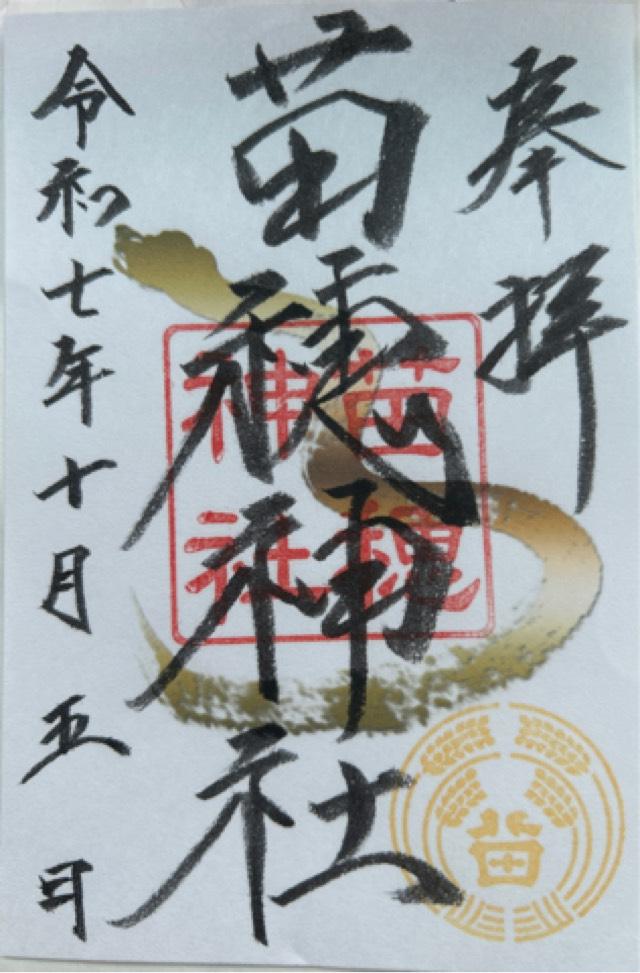 奉拝
苗穂神社
苗穂
神社
令和七年十月五日
苗